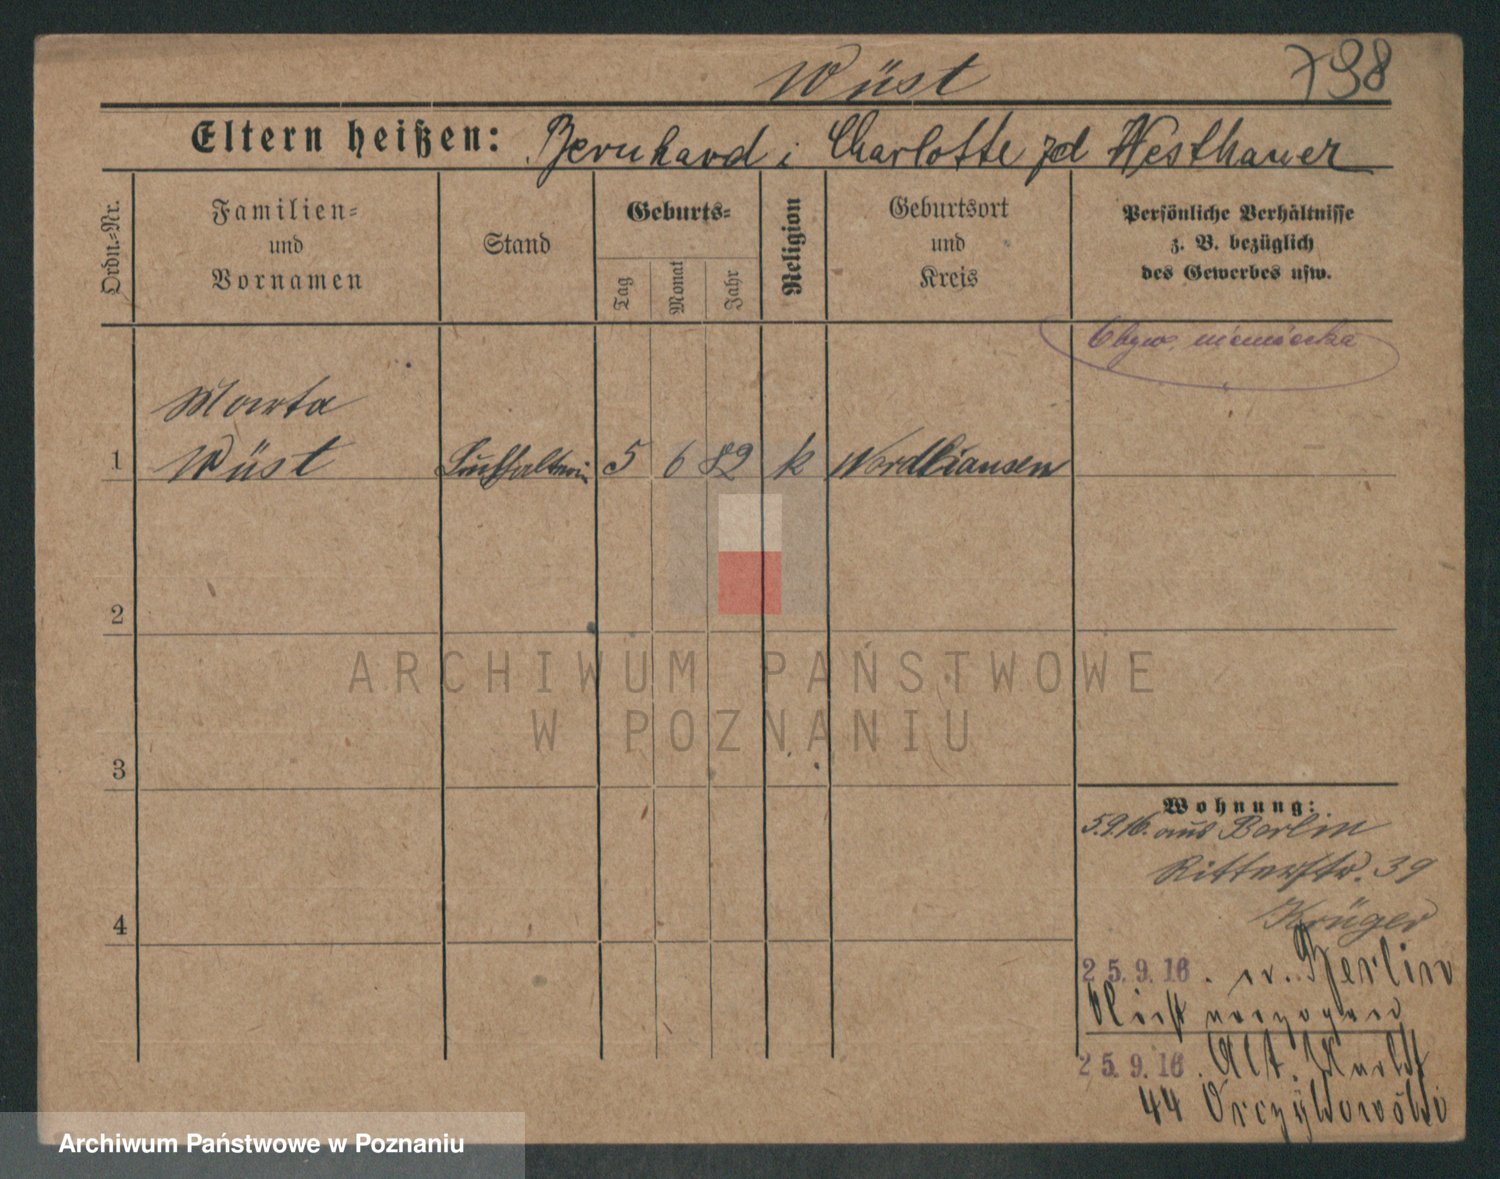 Wüst
798
Eltern heißen: Bernhard i Charlotte zd Westhauer
Ordn.-Nr.
Familien-
und
Vornamen
Stand
Geburts-
Tag
Monat
Jahr
Religion
Geburtsort
und
Kreis
Persönliche Verhältnisse
z. B. bezüglich
des Gewerbes usw.
Obyw. niemiecka
Marta
1 Wüst Buchhalterin 5 6 82 k Nordhausen
2
3
4
Wohnung:
5.9.16. aus Berlin
Ritterstr. 39
Krüger
25.9.16. n. Berlin
Nicht verzogen
25.9.16. Alt. Markt
44
ARCHIWUM PAŃSTWOWE
W POZNANIU
Archiwum Państwowe w Poznaniu